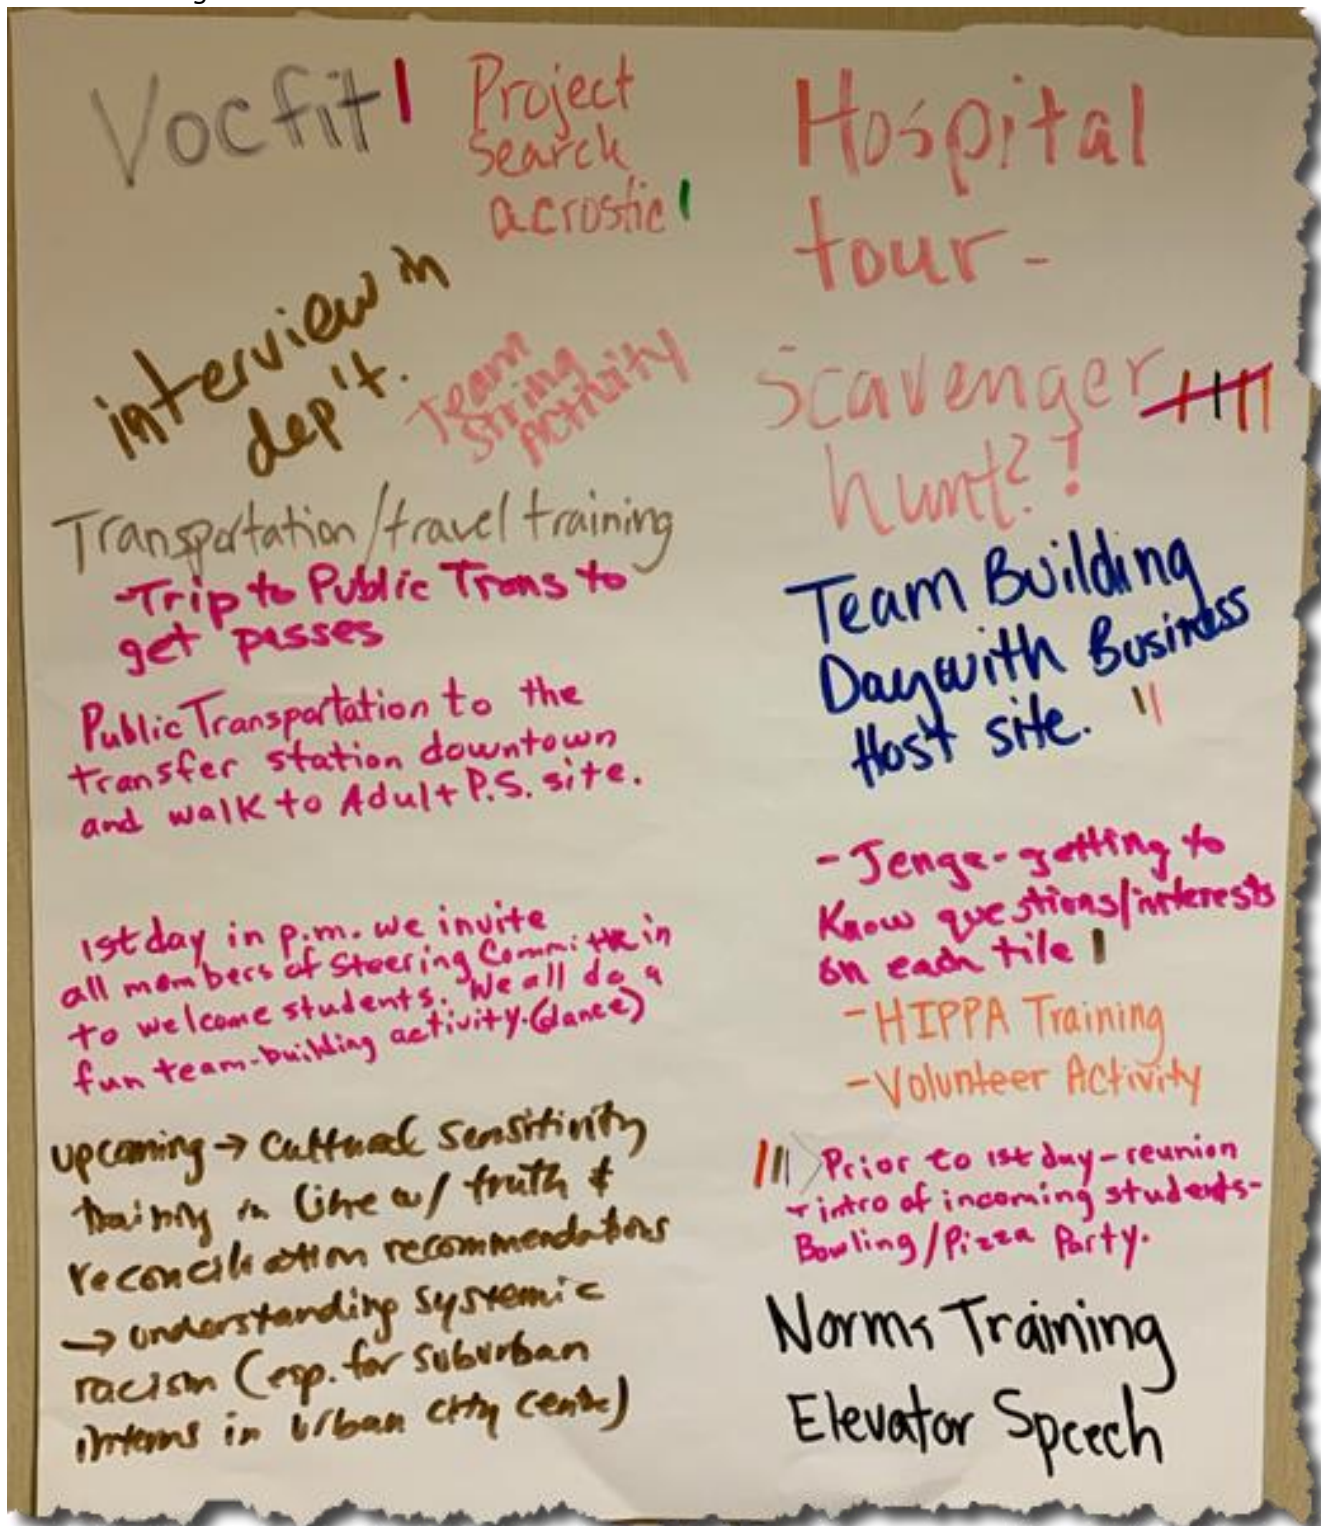 Vocfit
Project
Search
acrostic
interview in
dep't.
Team
String
Activity
Transportation/travel training
-Trip to Public Trans to
get passes
Public Transportation to the
transfer station downtown
and walk to Adult P.S. site.
1st day in p.m. we invite
all members of Steering Committee in
to welcome students. We all do a
fun team-building activity. (dance)
upcoming → cultural sensitivity
training in line w/ truth &
reconciliation recommendations
→ understanding systemic
racism (esp. for suburban
interns in urban city centre)
Hospital
tour -
Scavenger
hunt?!
Team Building
Day with Business
Host site.
- Jenga - getting to
Know questions/interests
on each tile
- HIPPA Training
- Volunteer Activity
Prior to 1st day - reunion
+ intro of incoming students-
Bowling/Pizza Party.
Norms Training
Elevator Speech